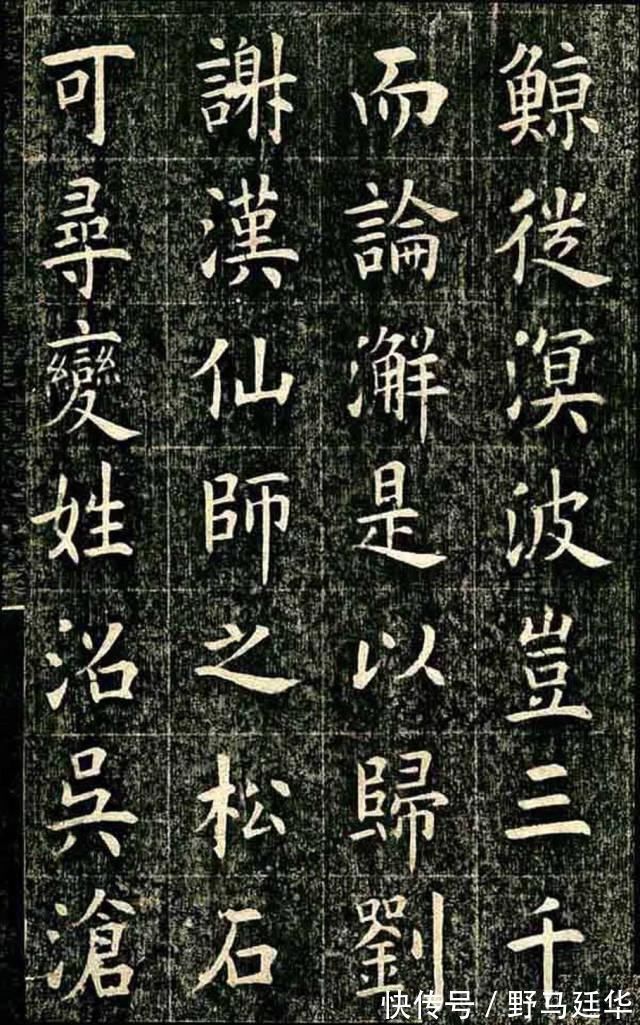 鯨從溟波豈三千
而論澥是以歸劉
謝漢仙師之松石
可尋變姓沿吳滄
快传号／野马廷华